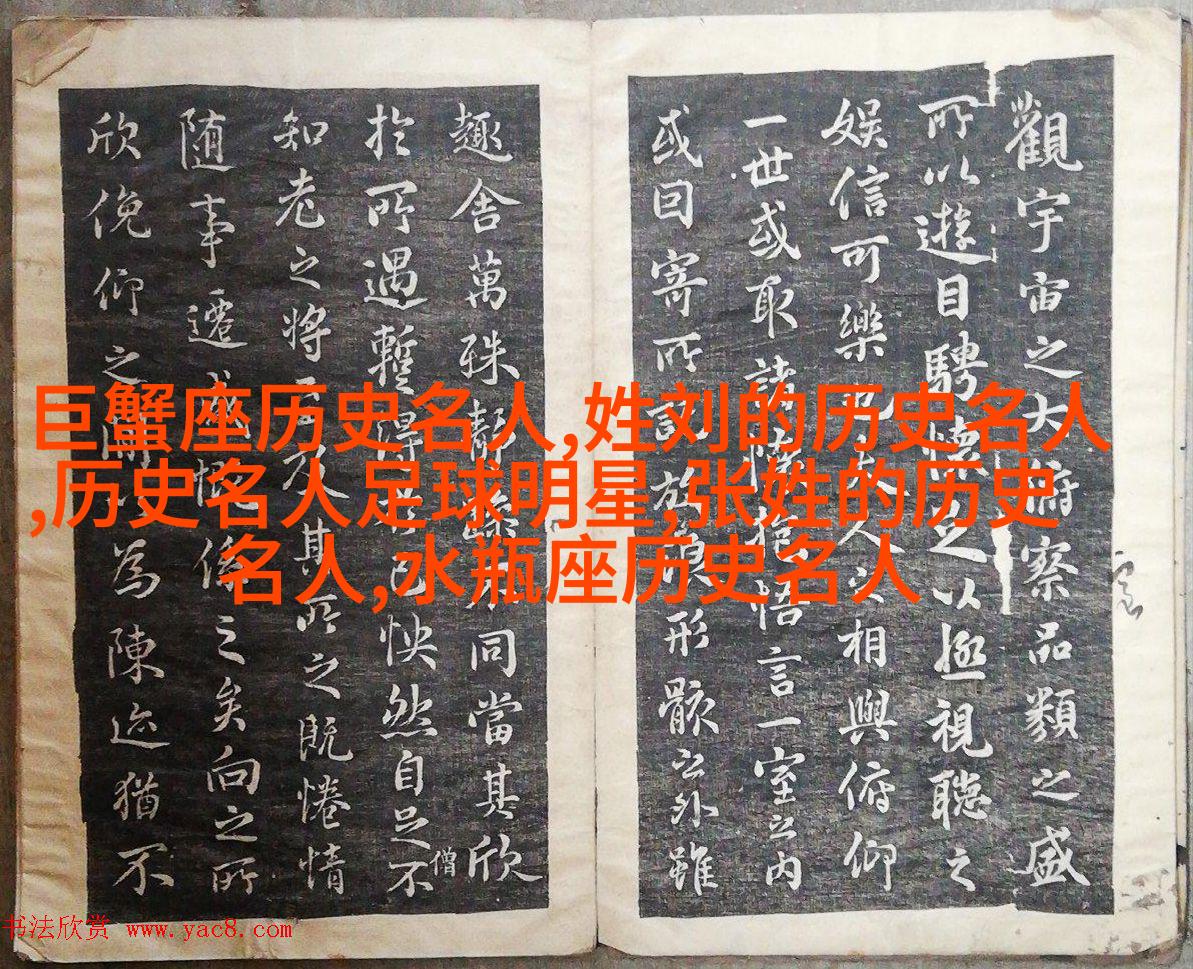 觀宇宙之大俯察品類之盛
所以遊目騁懷足以極視聽之
娱信可樂也夫人之相與俯仰
一世或取諸懷抱悟言一室之内
或因寄所託放浪形骸之外雖
趣舍萬殊静躁不同當其欣
於所遇暫得於己怏然自足不
僧
知老之將至及其所之既惓情
随事遷感慨係之矣向之所
欣俛仰之間以為陳迹猶不
巨蟹座历史名人,姓刘的历史名人
,历史名人足球明星,张姓的历史
名人,水瓶座历史名人
书法欣赏 www.yac8.com